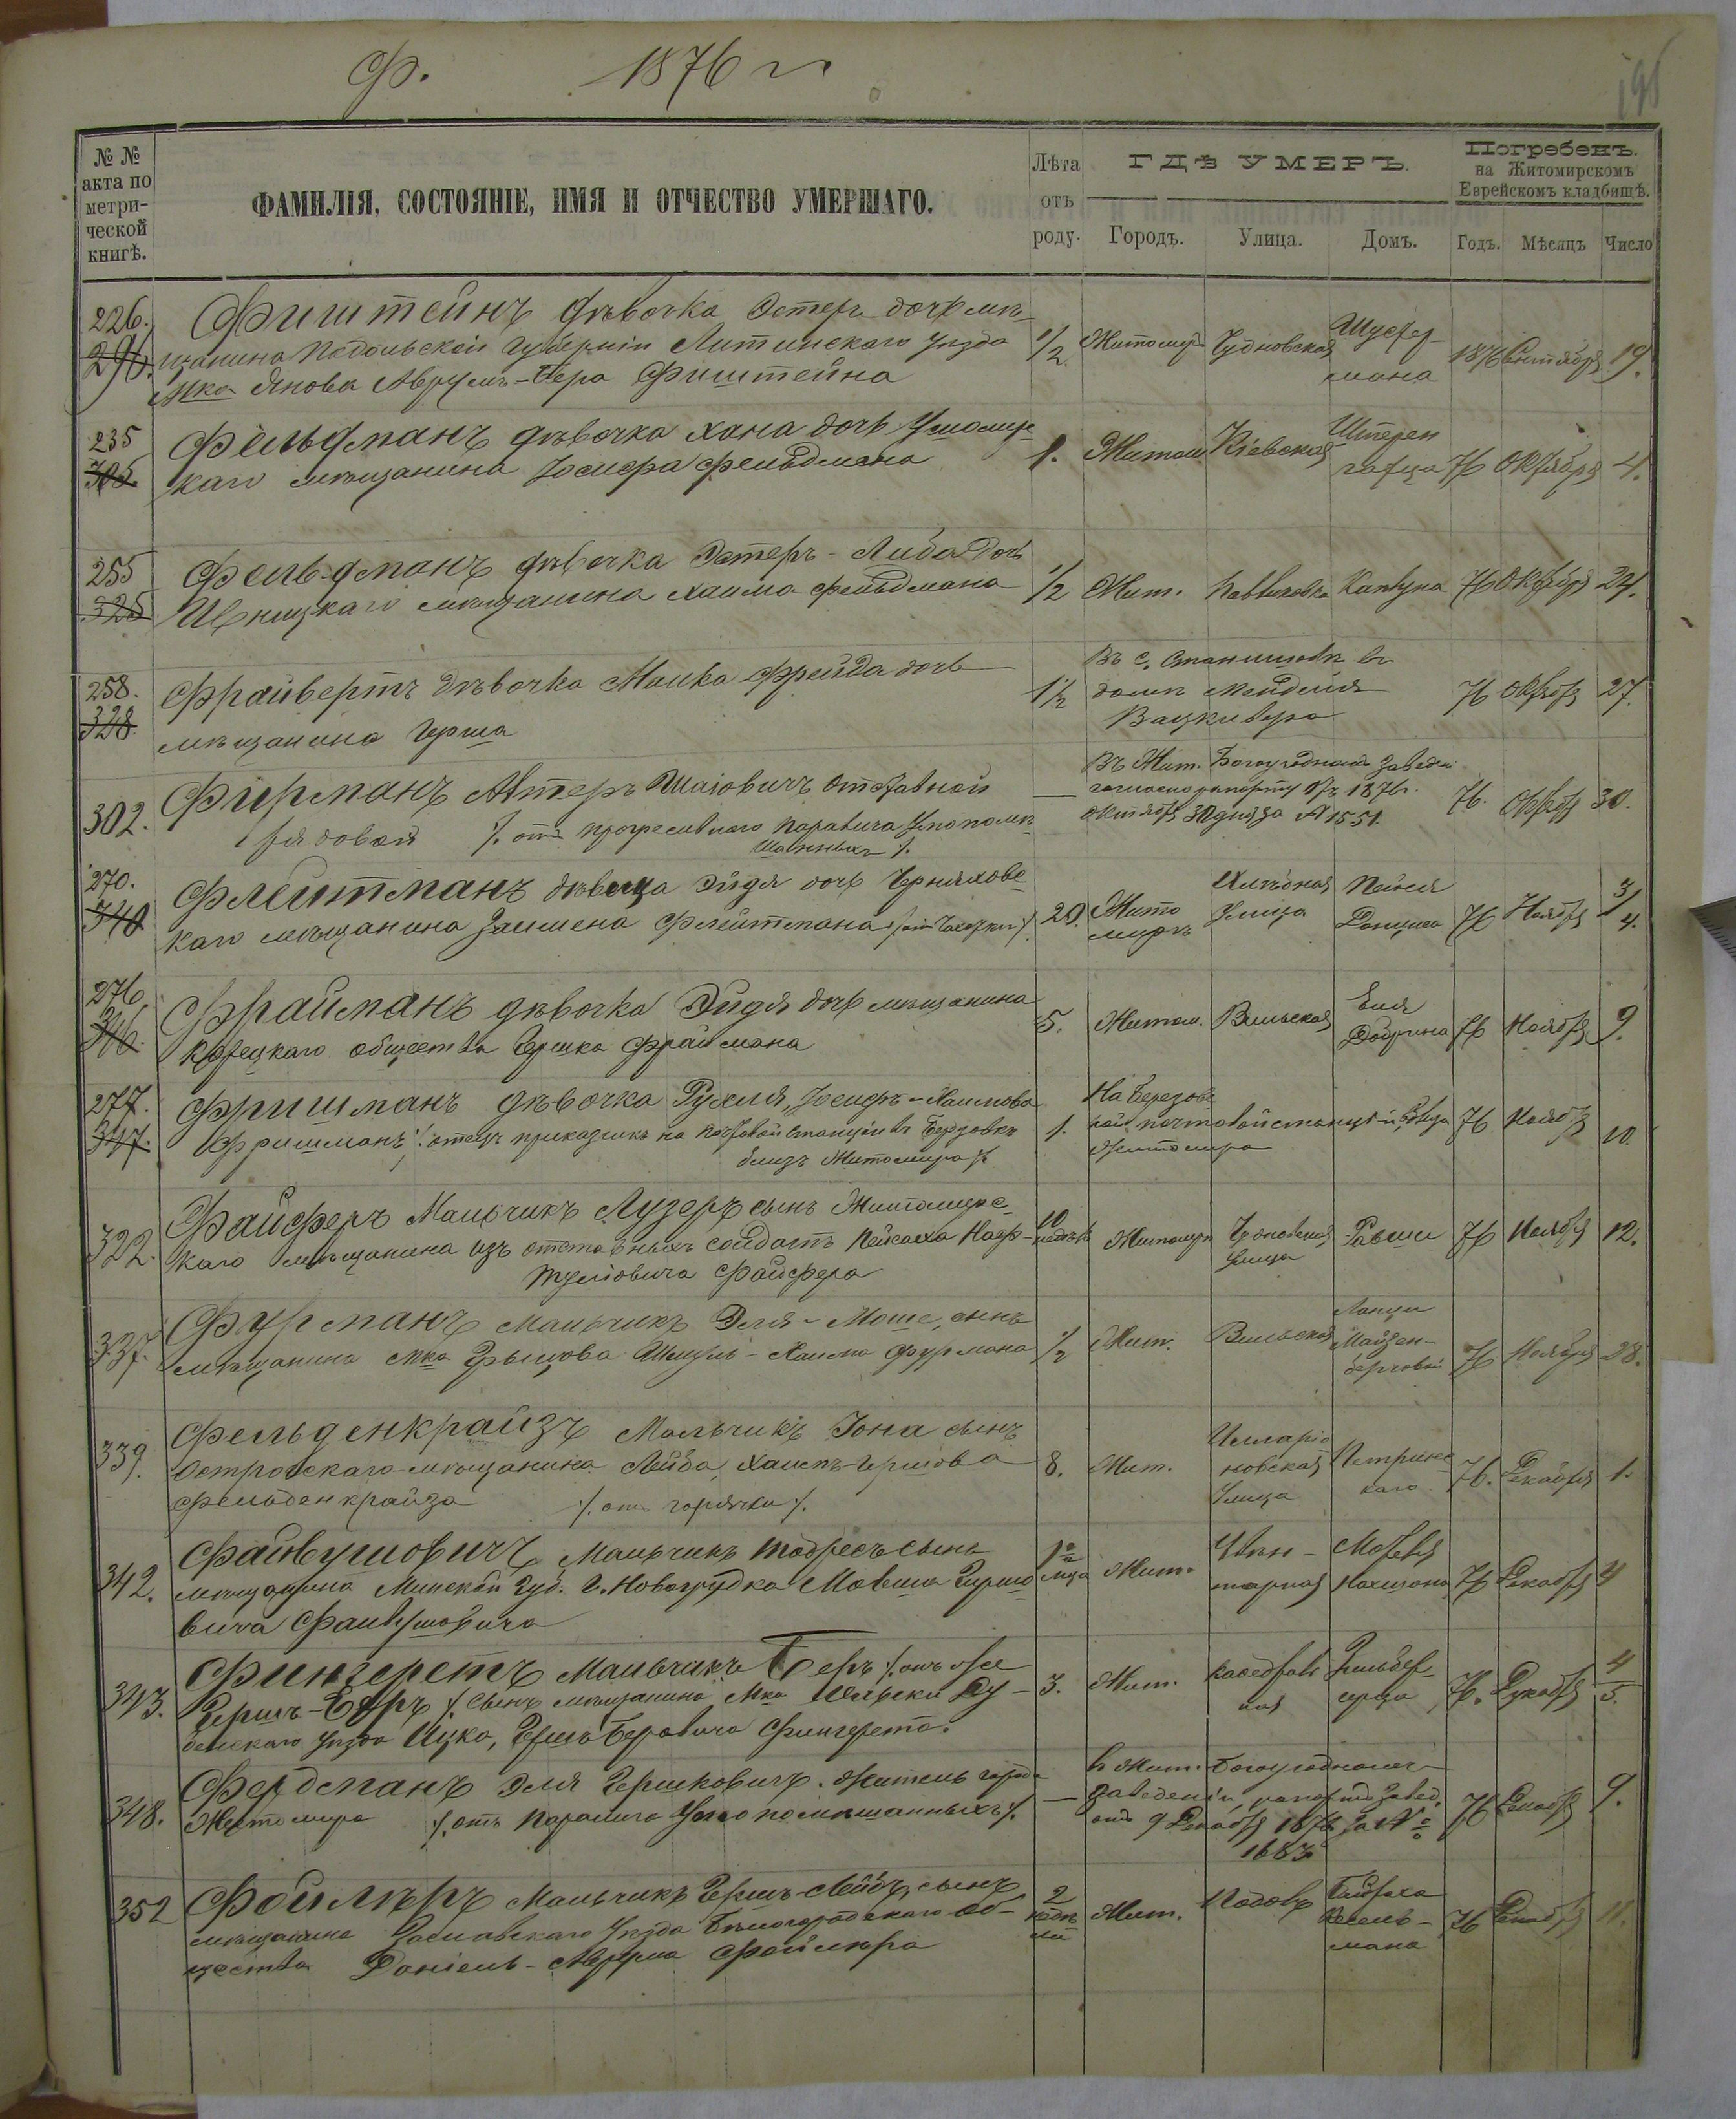 Ф. 1876 г.
195
№ № акта по метри- ческой книгѣ.
ФАМИЛІЯ, СОСТОЯНІЕ, ИМЯ И ОТЧЕСТВО УМЕРШАГО.
Лѣта отъ роду.
ГДѢ УМЕРЪ.
Городъ. Улица. Домъ.
Погребенъ.
на Житомирскомъ
Еврейскомъ кладбищѣ.
Годъ. Мѣсяцъ Число
226. Фиштейнъ дѣвочка Эстеръ дочь мѣ-
296. щанина Подольской губерніи Литинскаго уѣзда 1/2 Житомиръ Чудновская 1876 Сентября 19.
мка Янова Аврумъ-Бера Фиштейна
235 Фельдманъ дѣвочка Хана дочь Ушомир-
305 каго мѣщанина Іосифа Фельдмана 1. Житом. Кіевская Штерен 76 Октября 4.
255 Фельдманъ дѣвочка Эстеръ-Либа дочь
325 Ивницкаго мѣщанина Хаима Фельдмана 1/2 Жит. 76 Октября 24.
258. Фрайвертъ дѣвочка Малка-Фрейда дочь
328. мѣщанина Герша
1 1/2 Въ с. Станишовкѣ въ
домѣ Менделя 76 Октябр 27.
302. Фирманъ Алтеръ Шаіовичъ отставной
рядовой /. отъ прогресивнаго паралича умопомѣ-
шанныхъ /.
Въ Жит. Богоугодномъ Заведен.
согласно рапорту 1876 г.
Октябр 30 дня за № 1551. 76. Октябр 30.
270. Флейтманъ дѣвица Эйдя дочь Черняховс-
340 каго мѣщанина Зальмена Флейтмана /. отъ чахотки /. 20. Жито миръ Хлѣбная Улица Пейся 76 Ноябр 3/4.
276. Фрайманъ дѣвочка Эйдя дочь мѣщанина
346. Корецкаго общества Гершка Фраймана 5. Житом. Вильская Еля 76 Ноябр 9.
277. Фришманъ дѣвочка Рухля, Іосифъ-Хаимова
347. Фришманъ /. отецъ приказчикъ на почтовой станціи въ Березовкѣ
близъ Житомира /.
1. На Березовс
кой почтовой станціи, уѣзда
Житомира 76 Ноябр 10.
322. Файферъ Мальчикъ Лузеръ сынъ Житомирс-
каго мѣщанина изъ отставныхъ солдатъ Пейсаха Наф-
туліовича Файфера
10 недѣль Житомиръ Чудновская улица 76 Ноябр 12.
337. Фурманъ мальчикъ Эля-Моше, сынъ
мѣщанина мка Шмуль-Хаима Фурмана 1/2 Жит. Вильская 76 Ноября 28.
339. Фельденкрайзъ Мальчикъ Іона сынъ
Островскаго мѣщанина Лейба Хаимъ-Гершова
Фельденкрайза /. отъ горячки /.
8. Жит. Илларіо новская Улица Петринс каго 76. Декабря 1.
342. Файвушовичъ Мальчикъ Тодресъ сынъ
мѣщанина Минской губ. г. Новогрудка Мовша Гершо
вича Файвушовича
Жит. 76 Декабр 4
343. Фингеретъ Мальчикъ Беръ /. онъ же
Гершъ-Беръ /. сынъ мѣщанина мка Ду-
бенскаго уѣзда Ицко, Гершъ-Беровича Фингерета.
3. Жит. Кафедраль ная Гильбер 76. Декабр 4/5.
348. Фердманъ Эля Гершковичъ. Житель города
Житомира /. отъ паралича умопомѣшанныхъ /.
въ Жит. Богоугодномъ
Заведеніи, рапортъ завед.
отъ 9 Декабр 1876 за №
1683. 76 Декабр 9.
352 Фоймѣръ Мальчикъ Гершъ-Лейбъ, сынъ
мѣщанина Заславскаго уѣзда Бѣлогородскаго об-
щества Даніель-Аврума Фоймѣра
2 недѣ ли Жит. Подолъ 76 Декабр 11.